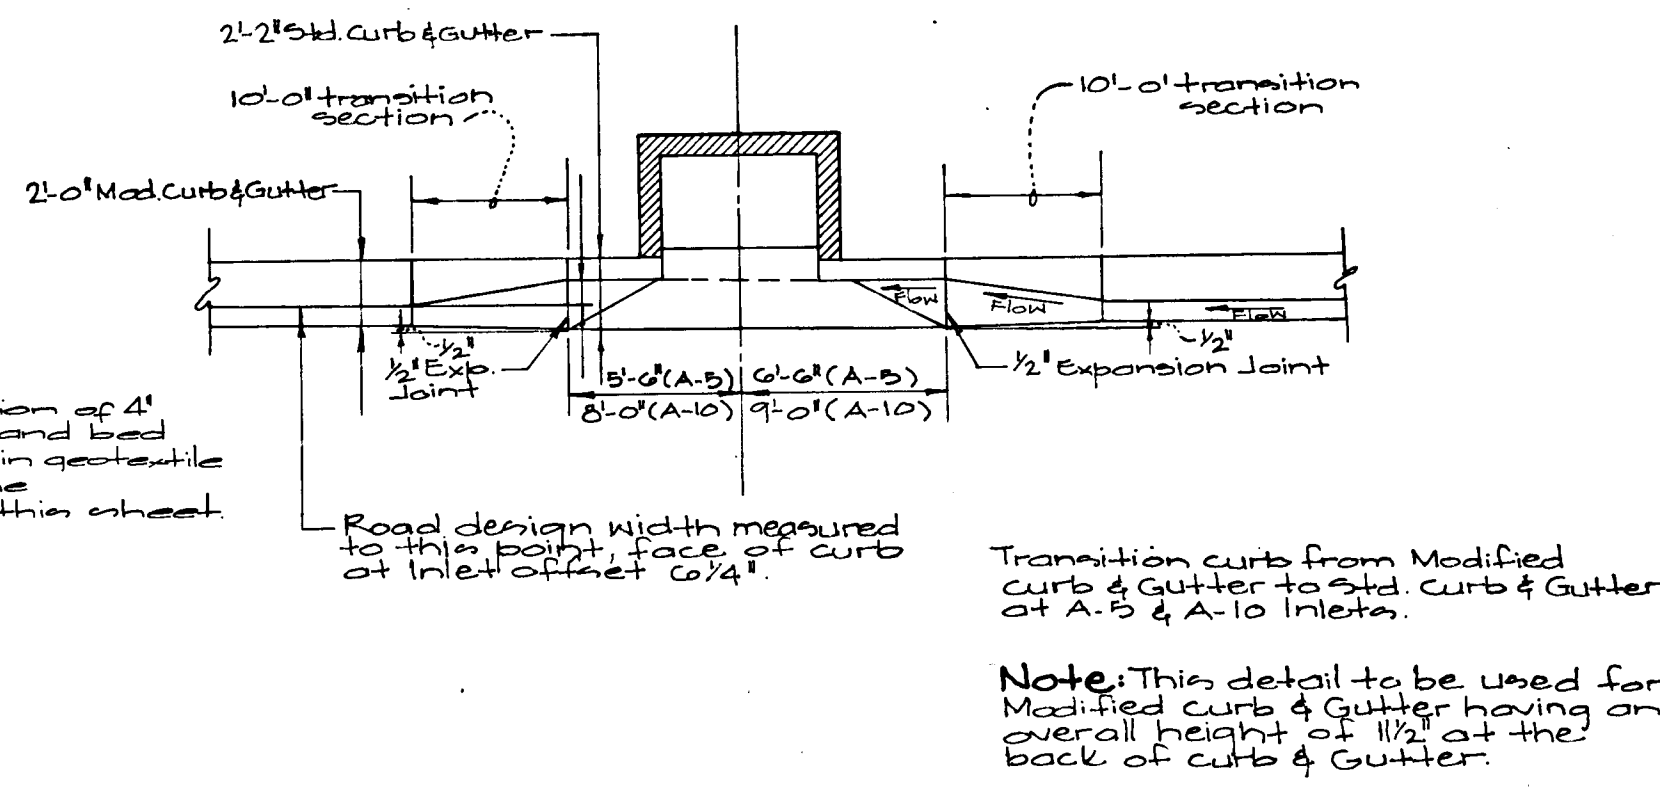 2'-2" Std. Curb & Gutter
10'-0" transition
section
10'-0' transition
section
2'-0" Mod. Curb & Gutter
Flow
Flow
Flow
1/2"
1/2" Exp.
Joint
1/2"
1/2" Expansion Joint
5'-6" (A-5)
6'-6" (A-5)
8'-0" (A-10)
9'-0" (A-10)
ion of 4"
and bed
in geotextile
e
this sheet.
Road design width measured
to this point, face of curb
at Inlet offset 6 1/4".
Transition curb from Modified
Curb & Gutter to Std. Curb & Gutter
at A-5 & A-10 Inlets.
Note: This detail to be used for
Modified Curb & Gutter having an
overall height of 11 1/2" at the
back of curb & Gutter.